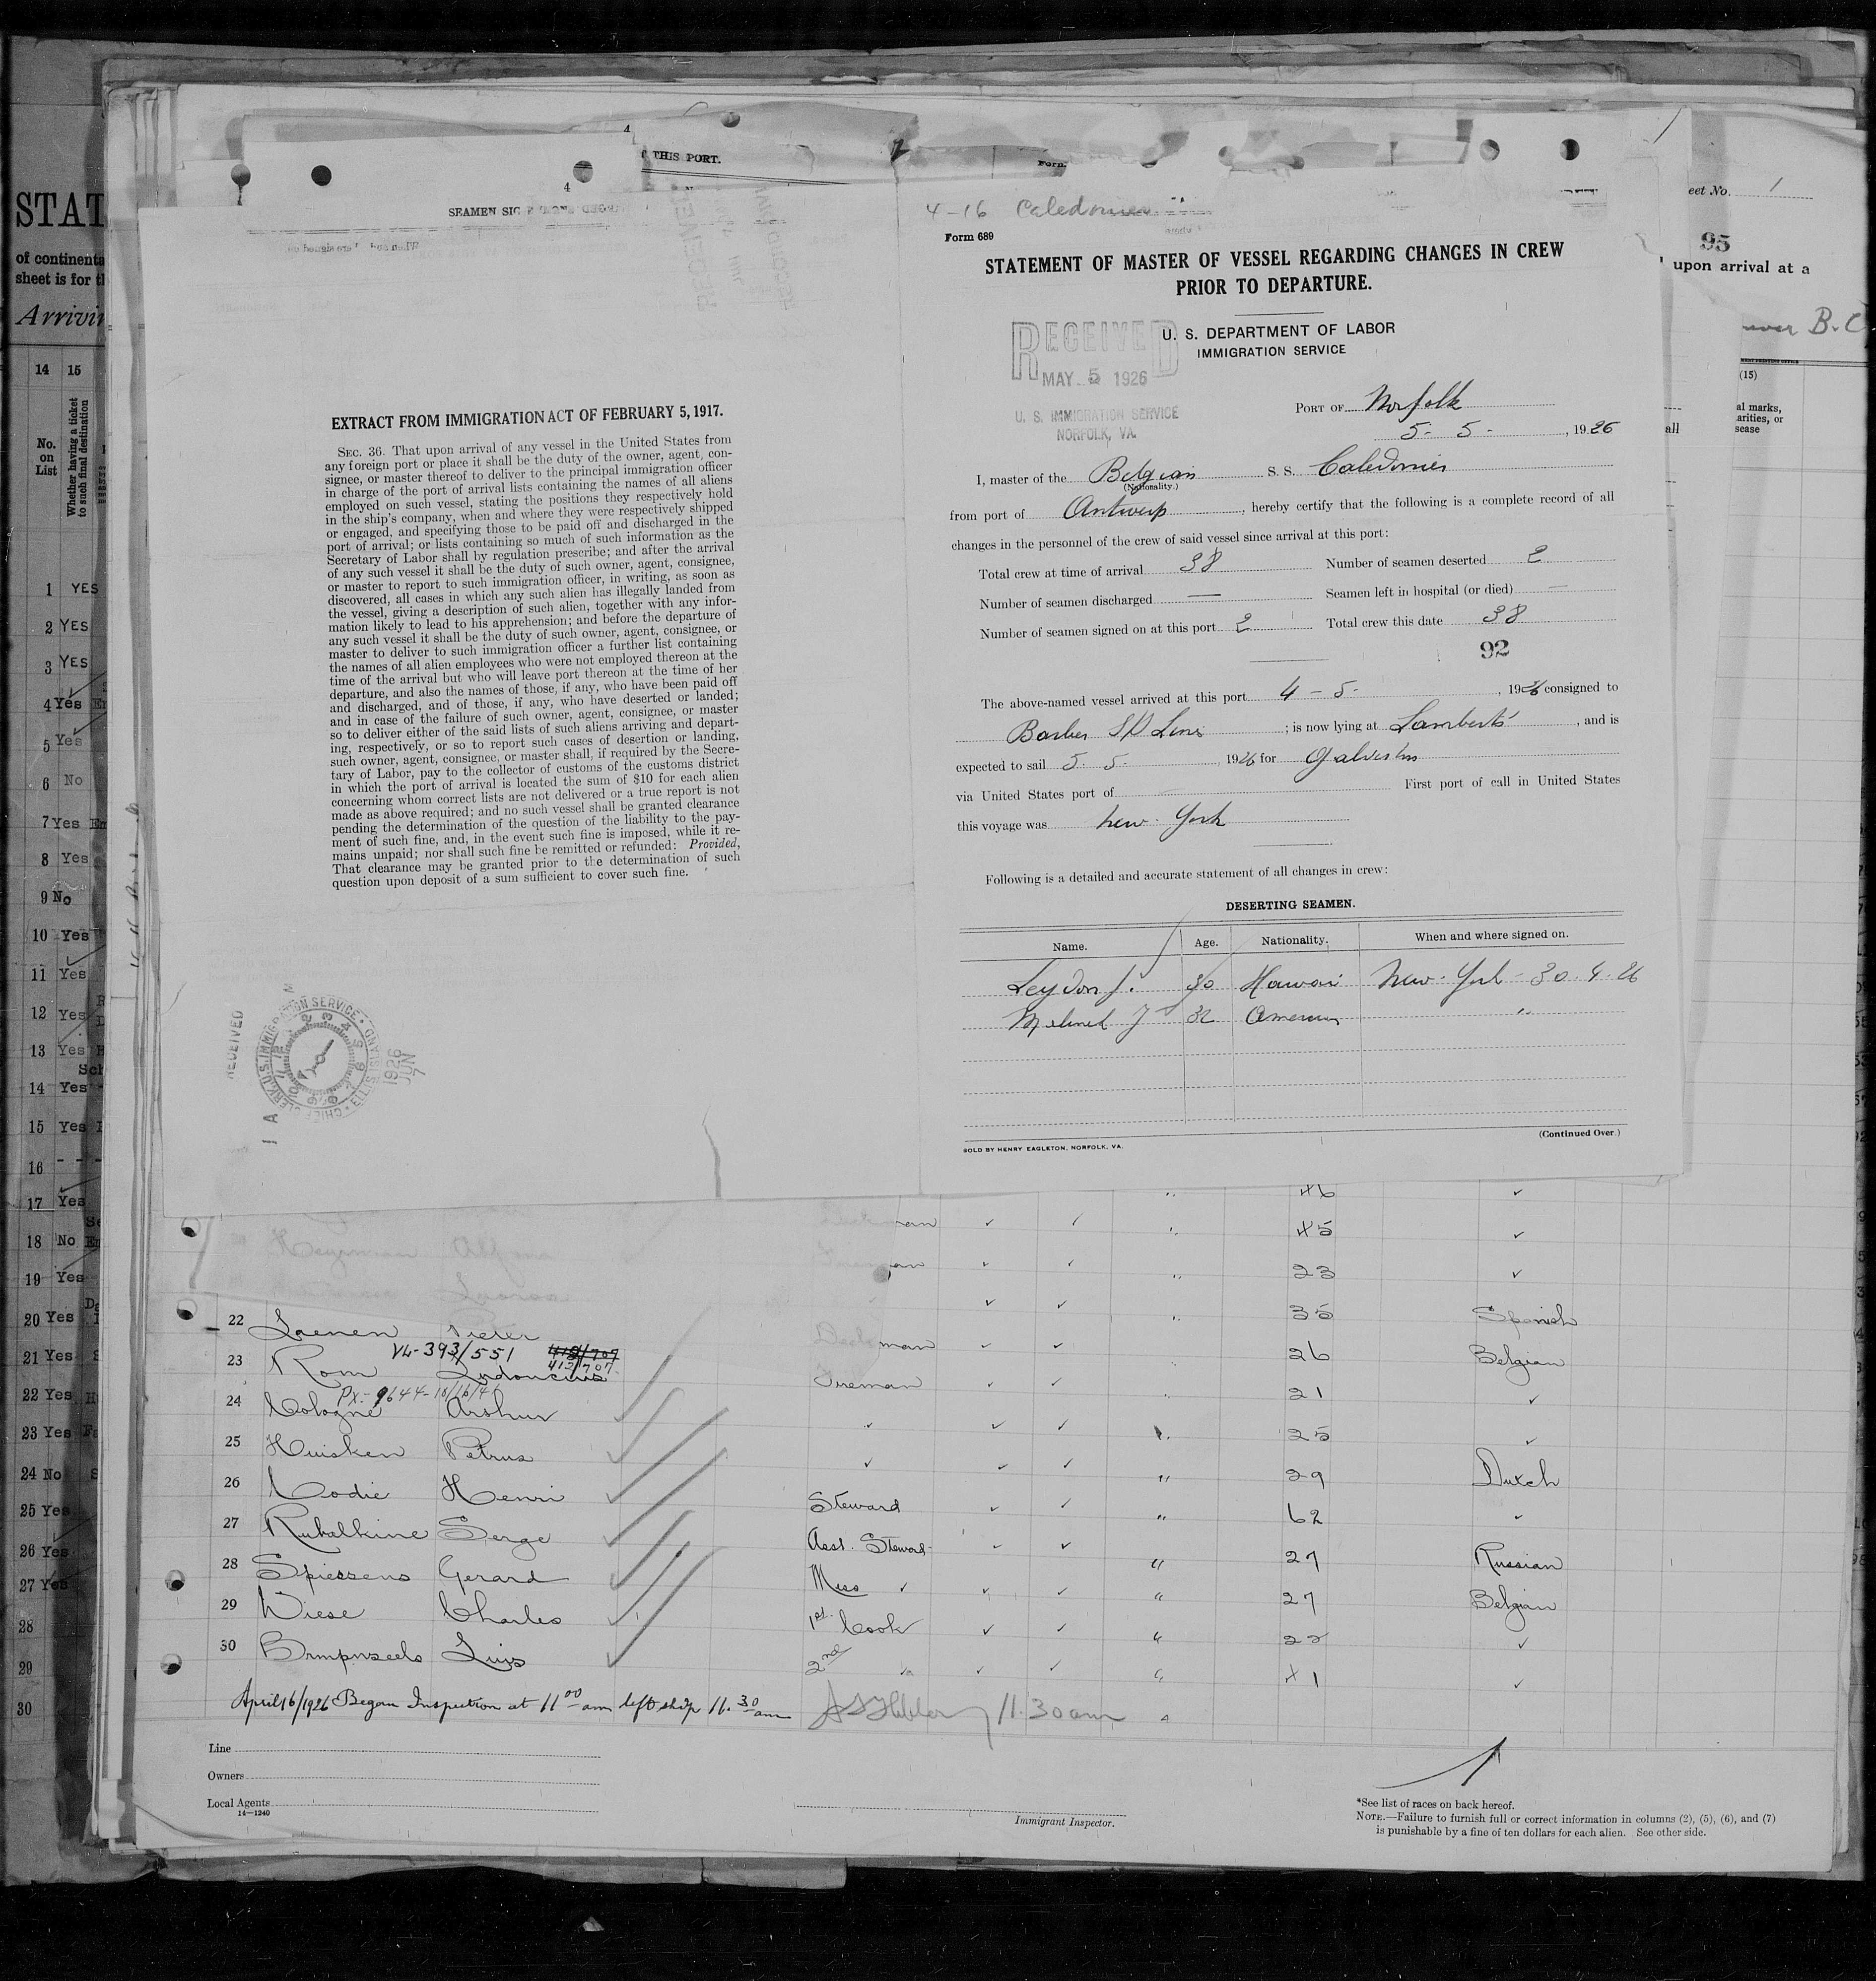 STAT
of continenta
sheet is for th
Arrivin
14 15
No.
on
List
Whether having a ticket
to such final destination
1 YES
2 YES
3 YES
4 Yes
5 Yes
6 No
7 Yes Em
8 Yes
9 No
10 Yes
11 Yes
12 Yes
13 Yes H
Sch
14 Yes
15 Yes
16 - -
17 Yes
18 No En
19 Yes
20 Yes
21 Yes
22 Yes
23 Yes
24 No S
25 Yes
26 Yes
27 Yes
28
29
30
THIS PORT.
4
4
SEAMEN SIG
EXTRACT FROM IMMIGRATION ACT OF FEBRUARY 5, 1917.
SEC. 36. That upon arrival of any vessel in the United States from
any foreign port or place it shall be the duty of the owner, agent, con-
signee, or master thereof to deliver to the principal immigration officer
in charge of the port of arrival lists containing the names of all aliens
employed on such vessel, stating the positions they respectively hold
in the ship's company, when and where they were respectively shipped
or engaged, and specifying those to be paid off and discharged in the
port of arrival; or lists containing so much of such information as the
Secretary of Labor shall by regulation prescribe; and after the arrival
of any such vessel it shall be the duty of such owner, agent, consignee,
or master to report to such immigration officer, in writing, as soon as
discovered, all cases in which any such alien has illegally landed from
the vessel, giving a description of such alien, together with any infor-
mation likely to lead to his apprehension; and before the departure of
any such vessel it shall be the duty of such owner, agent, consignee, or
master to deliver to such immigration officer a further list containing
the names of all alien employees who were not employed thereon at the
time of the arrival but who will leave port thereon at the time of her
departure, and also the names of those, if any, who have been paid off
and discharged, and of those, if any, who have deserted or landed;
and in case of the failure of such owner, agent, consignee, or master
so to deliver either of the said lists of such aliens arriving and depart-
ing, respectively, or so to report such cases of desertion or landing,
such owner, agent, consignee, or master shall, if required by the Secre-
tary of Labor, pay to the collector of customs of the customs district
in which the port of arrival is located the sum of $10 for each alien
concerning whom correct lists are not delivered or a true report is not
made as above required; and no such vessel shall be granted clearance
pending the determination of the question of the liability to the pay-
ment of such fine, and, in the event such fine is imposed, while it re-
mains unpaid; nor shall such fine be remitted or refunded: Provided,
That clearance may be granted prior to the determination of such
question upon deposit of a sum sufficient to cover such fine.
RECEIVED
CHIEF CLERK, U.S. IMMIGRATION SERVICE ELLIS ISLAND
1926
JUN
7
Form
4-16 Caledonier
Form 689
STATEMENT OF MASTER OF VESSEL REGARDING CHANGES IN CREW
PRIOR TO DEPARTURE.
U. S. DEPARTMENT OF LABOR
IMMIGRATION SERVICE
RECEIVED
MAY 5 1926
U. S. IMMIGRATION SERVICE
NORFOLK, VA.
PORT OF Norfolk
5 - 5 - , 1926
I, master of the Belgian S. S. Caledonier
(Nationality.)
from port of Antwerp, hereby certify that the following is a complete record of all
changes in the personnel of the crew of said vessel since arrival at this port:
Total crew at time of arrival 38 Number of seamen deserted 2
Number of seamen discharged — Seamen left in hospital (or died) —
Number of seamen signed on at this port 2 Total crew this date 38
92
The above-named vessel arrived at this port 4 - 5 - , 1926 consigned to
Barber SS Line ; is now lying at Lamberts , and is
expected to sail 5 - 5 - , 1926 for Galveston
via United States port of First port of call in United States
this voyage was New-York
Following is a detailed and accurate statement of all changes in crew:
DESERTING SEAMEN.
Name. Age. Nationality. When and where signed on.
Leydon J. 30 Hawai New-York - 30.4.26
J 32 American "
(Continued Over.)
SOLD BY HENRY EAGLETON, NORFOLK, VA.
eet No. 1
95
upon arrival at a
B.C.
all
(15)
al marks,
arities, or
sease
46 ✓
✓ ✓ " 45 ✓
✓ ✓ " 23 ✓
Heyrman Alfons
✓ ✓ " 35 Spanish
22 Laenen Pieter Deckman ✓ ✓ 26 Belgian
VL-393/551 412/707
412/707
23 Rom Ludovicus Fireman ✓ ✓ 21 ✓
PX-9644-
24 Cologne Arthur ✓ ✓ ✓ 25 ✓
25 Huisken Petrus ✓ ✓ ✓ " 29 Dutch
26 Henri Steward ✓ ✓ " 62 ✓
27 Rubalkine Serge Asst. Steward ✓ ✓ " 27 Russian
28 Spiessens Gerard Mess ✓ ✓ ✓ " 27 Belgian
29 Wiese Charles 1st Cook ✓ ✓ " 22 ✓
30 Luis 2nd " ✓ ✓ " 41 ✓
April 16/1926 Began Inspection at 11 00 am left ship 11.30 am 11.30 am
Line
Owners
Local Agents
14—1240
Immigrant Inspector.
*See list of races on back hereof.
NOTE.—Failure to furnish full or correct information in columns (2), (5), (6), and (7)
is punishable by a fine of ten dollars for each alien. See other side.